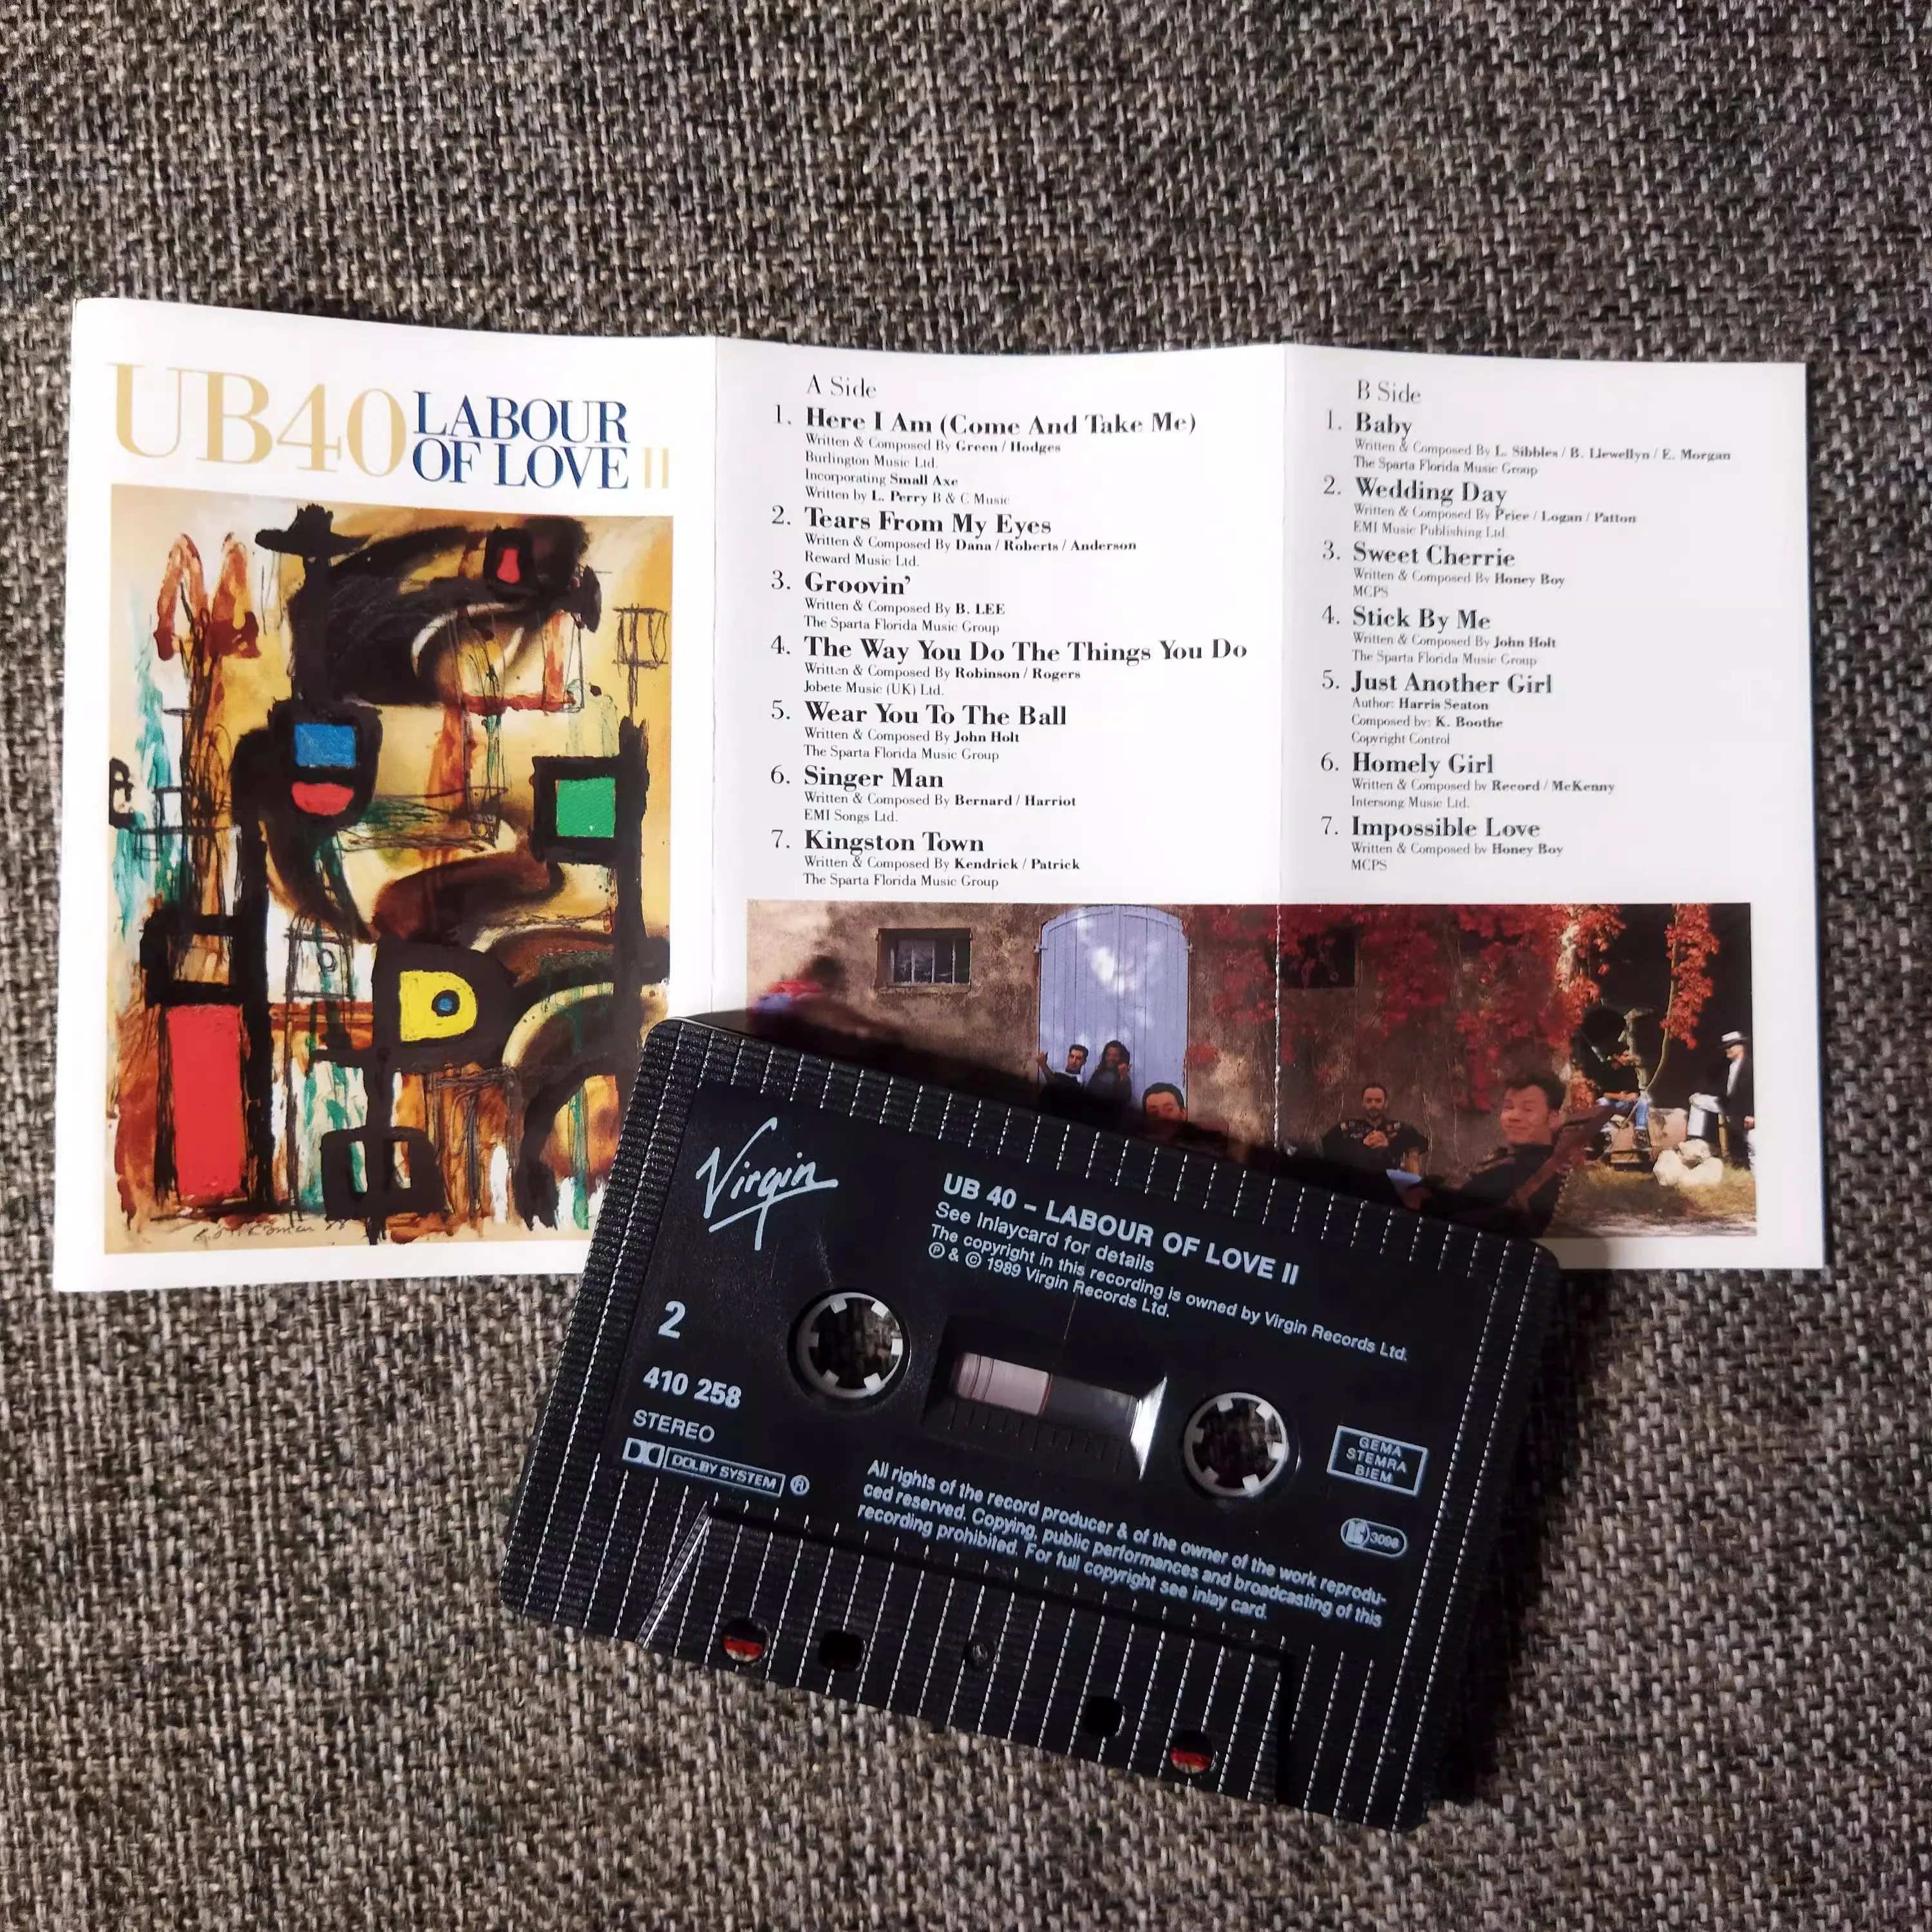 UB40 LABOUR
OF LOVE II
A Side
1. Here I Am (Come And Take Me)
Written & Composed By Green / Hodges
Burlington Music Ltd.
Incorporating Small Axe
Written by L. Perry B & C Music
2. Tears From My Eyes
Written & Composed By Dana / Roberts / Anderson
Reward Music Ltd.
3. Groovin'
Written & Composed By B. LEE
The Sparta Florida Music Group
4. The Way You Do The Things You Do
Written & Composed By Robinson / Rogers
Jobete Music (UK) Ltd.
5. Wear You To The Ball
Written & Composed By John Holt
The Sparta Florida Music Group
6. Singer Man
Written & Composed By Bernard / Harriot
EMI Songs Ltd.
7. Kingston Town
Written & Composed By Kendrick / Patrick
The Sparta Florida Music Group
B Side
1. Baby
Written & Composed By L. Sibbles / B. Llewellyn / E. Morgan
The Sparta Florida Music Group
2. Wedding Day
Written & Composed By Price / Logan / Patton
EMI Music Publishing Ltd.
3. Sweet Cherrie
Written & Composed By Honey Boy
MCPS
4. Stick By Me
Written & Composed By John Holt
The Sparta Florida Music Group
5. Just Another Girl
Author: Harris Seaton
Composed by: K. Boothe
Copyright Control
6. Homely Girl
Written & Composed by Record / McKenny
Intersong Music Ltd.
7. Impossible Love
Written & Composed by Honey Boy
MCPS
Virgin
UB 40 – LABOUR OF LOVE II
See Inlaycard for details
The copyright in this recording is owned by Virgin Records Ltd.
℗ & © 1989 Virgin Records Ltd.
2
410 258
STEREO
DOLBY SYSTEM ®
GEMA
STEMRA
BIEM
LC 3098
All rights of the record producer & of the owner of the work reprodu-
ced reserved. Copying, public performances and broadcasting of this
recording prohibited. For full copyright see inlay card.